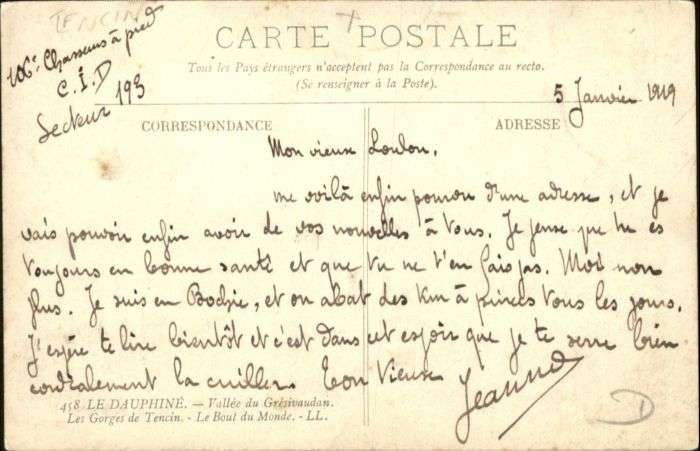 TENCIN
CARTE POSTALE
Tous les Pays étrangers n'acceptent pas la Correspondance au recto.
(Se renseigner à la Poste).
106e Chasseurs à pied
C.I.D
Secteur 193
5 Janvier 1919
CORRESPONDANCE
ADRESSE
Mon vieux Loulou,
me voilà enfin pourvu d'une adresse, et je
vais pouvoir enfin avoir de vos nouvelles à tous. Je pense que tu es
toujours en bonne santé et que tu ne t'en fais pas. Moi non
plus. Je suis en Bochie, et on abat des Km à pinces tous les jours.
J'espère te lire bientôt et c'est dans cet espoir que je te serre bien
cordialement la cuiller. Ton Vieux
Jeannot
458 LE DAUPHINÉ. — Vallée du Grésivaudan.
Les Gorges de Tencin. - Le Bout du Monde. - LL.
D